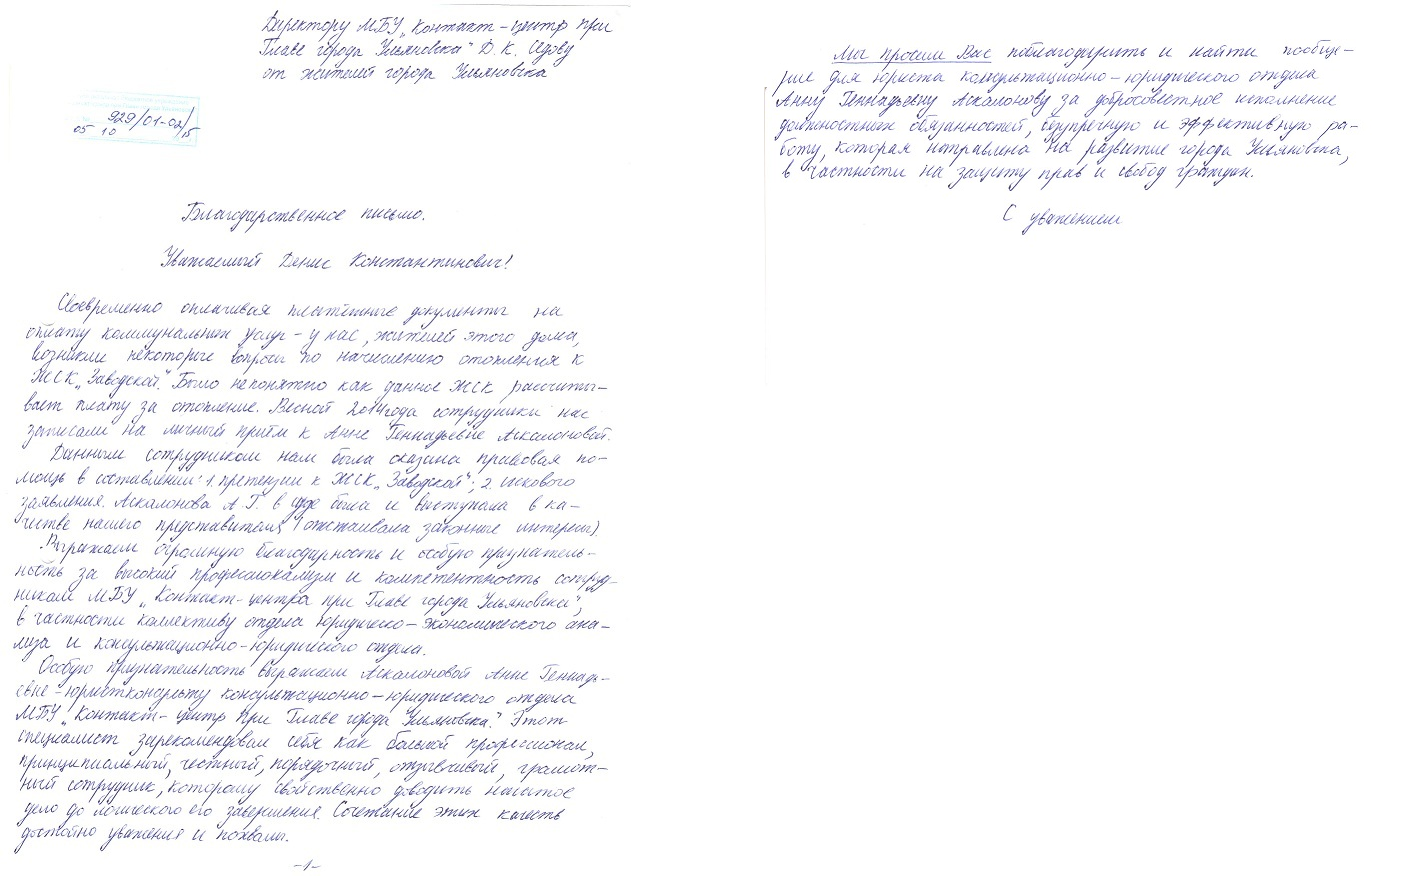 Директору МБУ „Контакт-центр при
Главе города Ульяновска" Д. К. Седову
от жителей города Ульяновска
929/01-02/15
05 10
Благодарственное письмо.
Уважаемый Денис Константинович!
Своевременно оплачивая платёжные документы на
оплату коммунальных услуг - у нас, жителей этого дома,
возникли некоторые вопросы по начислению отопления к
ЖСК „Заводской". Было непонятно как данное ЖСК рассчиты-
вает плату за отопление. Весной 2014 года сотрудники нас
записали на личный приём к Анне Геннадьевне Аскалоновой.
Данным сотрудником нам была оказана правовая по-
мощь в составлении: 1. претензии к ЖСК „Заводской"; 2. искового
заявления. Аскалонова А. Г. в суде была и выступала в ка-
честве нашего представителя (отстаивала законные интересы).
Выражаем огромную благодарность и особую признатель-
ность за высокий профессионализм и компетентность сотруд-
никам МБУ „Контакт-центра при Главе города Ульяновска",
в частности коллективу отдела юридическо-экономического ана-
лиза и консультационно-юридического отдела.
Особую признательность выражаем Аскалоновой Анне Геннадь-
евне - юристконсульту консультационно-юридического отдела
МБУ „Контакт-центр при Главе города Ульяновска". Этот
специалист зарекомендовал себя как большой профессионал,
принципиальный, честный, порядочный, отзывчивый, грамот-
ный сотрудник, которому свойственно доводить начатое
дело до логического его завершения. Сочетание этих качеств
достойно уважения и похвалы.
-1-
Мы просим Вас поблагодарить и найти поощре-
ние для юриста консультационно-юридического отдела
Анну Геннадьевну Аскалонову за добросовестное исполнение
должностных обязанностей, безупречную и эффективную ра-
боту, которая направлена на развитие города Ульяновска,
в частности на защиту прав и свобод граждан.
С уважением